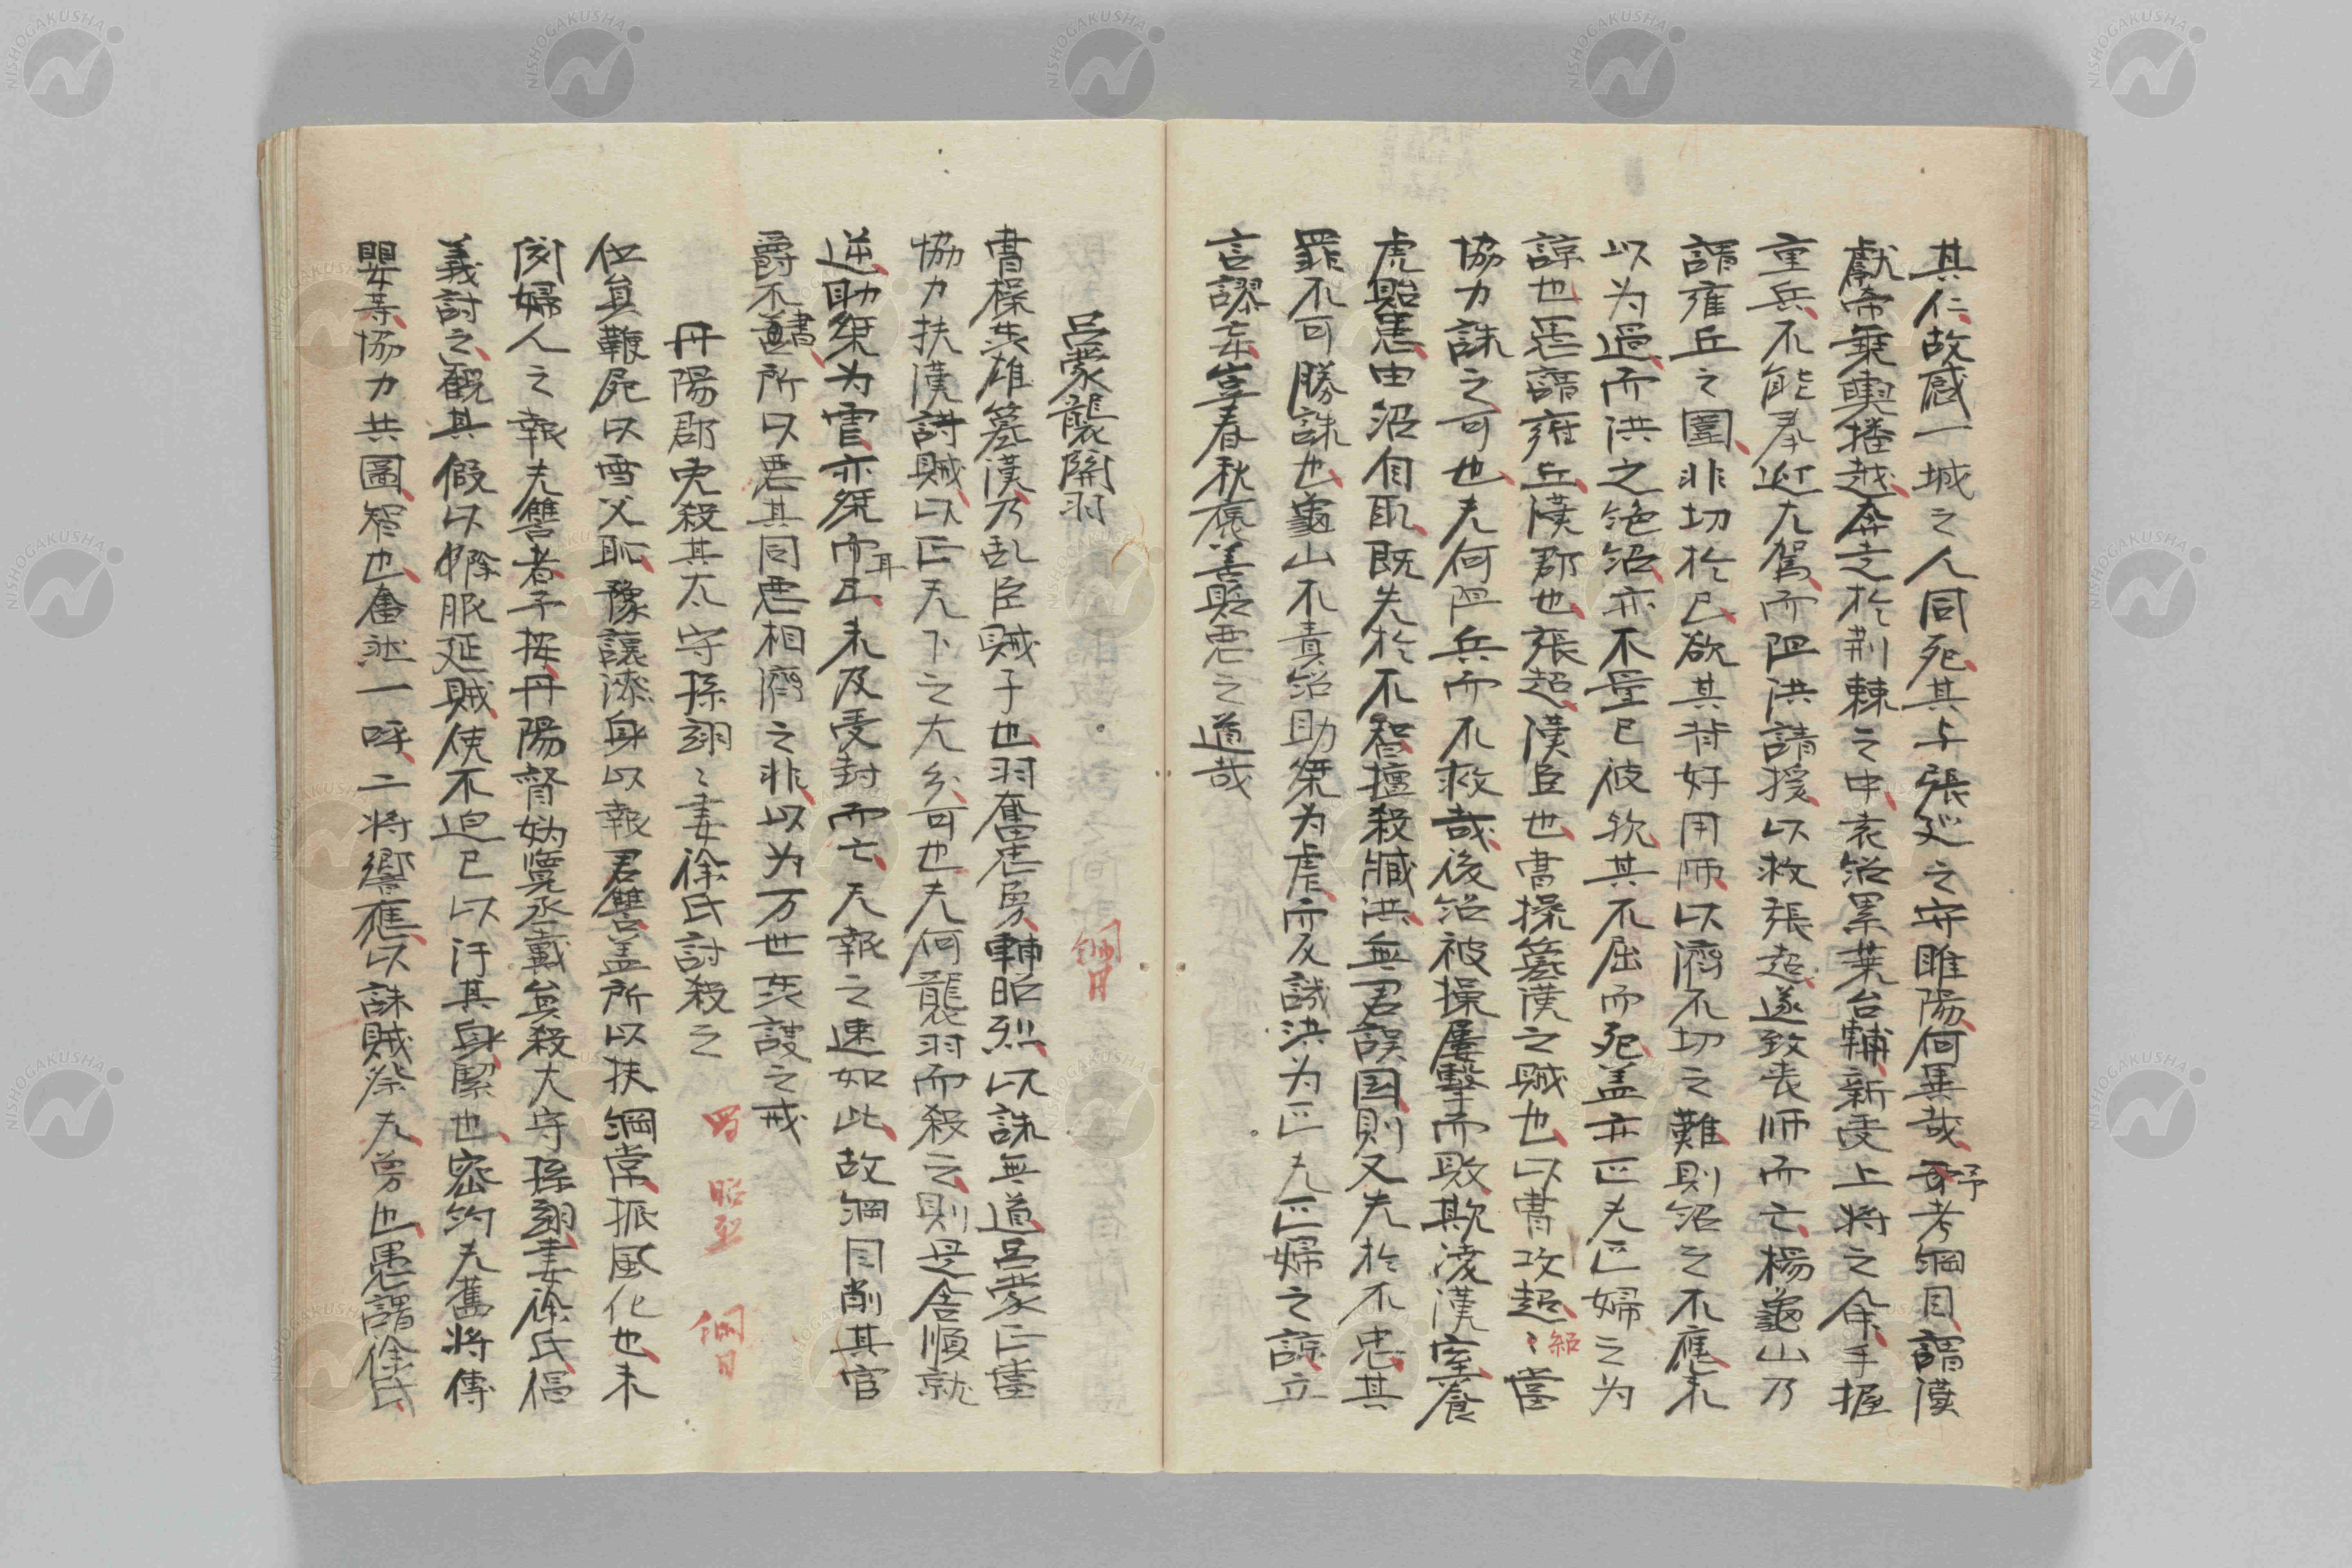 其仁故感一城之人同死其与張巡之守睢陽何異哉予考綱目謂漢
獻帝乗輿播越奔走於荆棘之中袁紹累葉台輔新受上将之命手握
重兵不能奉迎大駕而阻洪請援以救張超遂致喪師而亡楊龜山乃
謂雍丘之圍非切於已欲其背好用师以濟不切之難則紹之不應未
以为過而洪之絶紹亦不量已彼欤其不屈而死盖亦匹夫匹婦之为
諒也愚謂雍丘漢郡也張超漢臣也曹操簒漢之賊也以曹攻超紹當
協力誅之可也夫何阻兵而不救哉後紹被操屢擊而敗欺凌漢室養
虎貽患由紹自取既失於不智擅殺臧洪無君誤国則又失於不忠其
罪不可勝誅也龜山不責紹助桀为虐而反議洪为匹夫匹婦之諒立
言謬妄豈春秋襃善貶悪之道哉
吕蒙襲關羽 綱目
曹操奸雄簒漢乃乱臣賊子也羽奮忠勇輔昭烈以誅無道吕蒙正當
協力扶漢討賊以正天下之大分可也夫何襲羽而殺之則是舎順就
逆助桀为虐亦桀而耳未及受封而亡天報之速如此故綱目削其官
爵不書所以悪其同悪相濟之非以为万世奸諛之戒
丹陽郡吏殺其太守孫翊〻妻徐氏討殺之 昭烈 綱目
伍員鞭屍以雪父恥豫讓漆身以報君讐盖所以扶綱常振風化也未
例婦人之報夫讐者予按丹陽督媯覽丞戴員殺太守孫翊妻徐氏倡
義討之觀其假以除服延賊使不迫已以汙其身緊也密約夫舊将傳
嬰等協力共圖智也奮然一呼二将響應以誅賊祭夫勇也愚謂徐氏